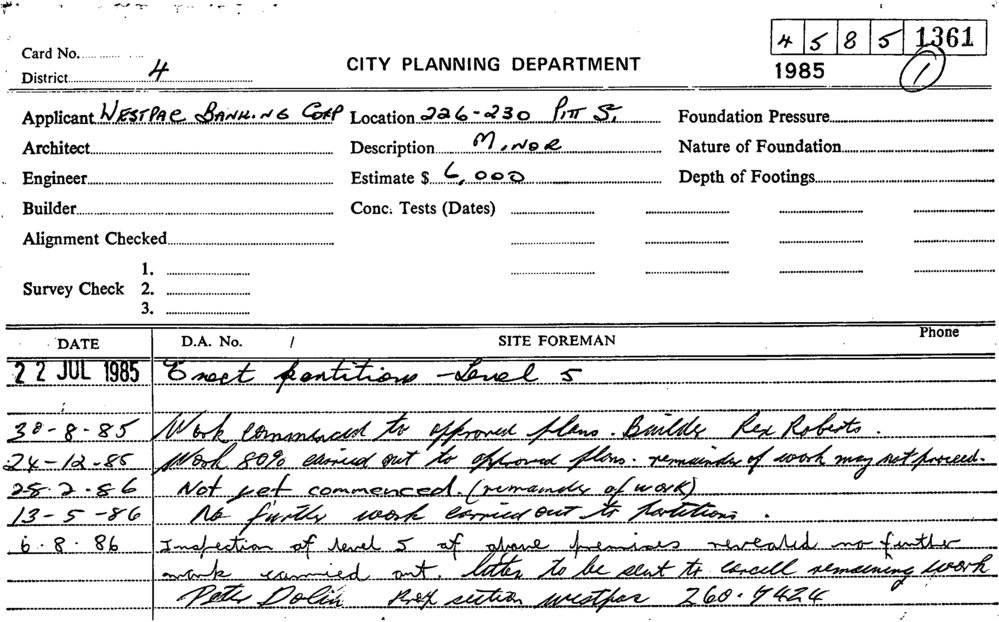 4 5 8 5 1361
Card No.
District 4
CITY PLANNING DEPARTMENT
1985
1
Applicant WESTPAC BANKING CORP Location 226-230 PITT ST. Foundation Pressure
Architect Description MINOR Nature of Foundation
Engineer Estimate $ 6,000 Depth of Footings
Builder Conc. Tests (Dates)
Alignment Checked
1.
Survey Check 2.
3.
DATE D.A. No. / SITE FOREMAN Phone
22 JUL 1985 Erect partitions - Level 5
30-8-85 Work commenced to approved plans. Builder Rex Roberts.
24-12-85 Work 80% carried out to approved plans. remainder of work may not proceed.
28-2-86 Not yet commenced. (remainder of work)
13-5-86 No further work carried out to Partitions.
6.8.86 Inspection of level 5 of above premises revealed no further
work carried out. letter to be sent to cancell remaining work
Peter Dolin Prop section westpac 260.7424